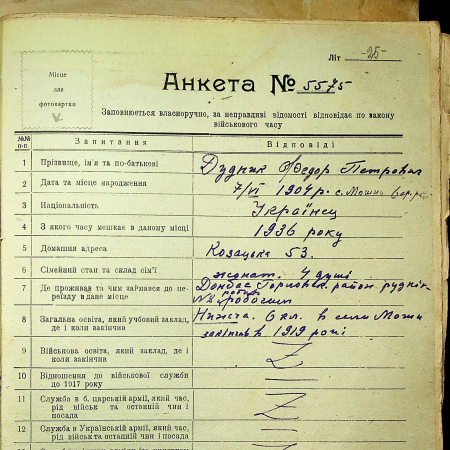 Літ -25-
Місце
для
фотокартки
Анкета № 5575
Заповнюється власноручно, за неправдиві відомості відповідає по закону
військового часу
№№ п-п Запитання Відповіді
1 Прізвище, ім'я та по-батькові Дудник Федор Петрович
2 Дата та місце народження 7/VI 1907 р. с. Мошни
3 Національність Українец
4 З якого часу мешкає в даному місці 1936 року
5 Домашня адреса Козацька 53.
6 Сімейний стан та склад сім'ї жонат. 4 душі
7 Де проживав та чим займався до пе-
реїзду в дане місце Донбас Горловск. район рудник
№ робочим
8 Загальна освіта, який учбовий заклад,
де і коли закінчив Нижча. 6 кл. в селі Мошни
закінчив в 1919 році
9 Військова освіта, який заклад, де і
коли закінчив Z
10 Відношення до військової служби
до 1917 року
11 Служба в б. царській армії, який час,
рід військ та останній чин і
посада Z
12 Служба в Українській армії, який час,
рід військ та останній чин і посада